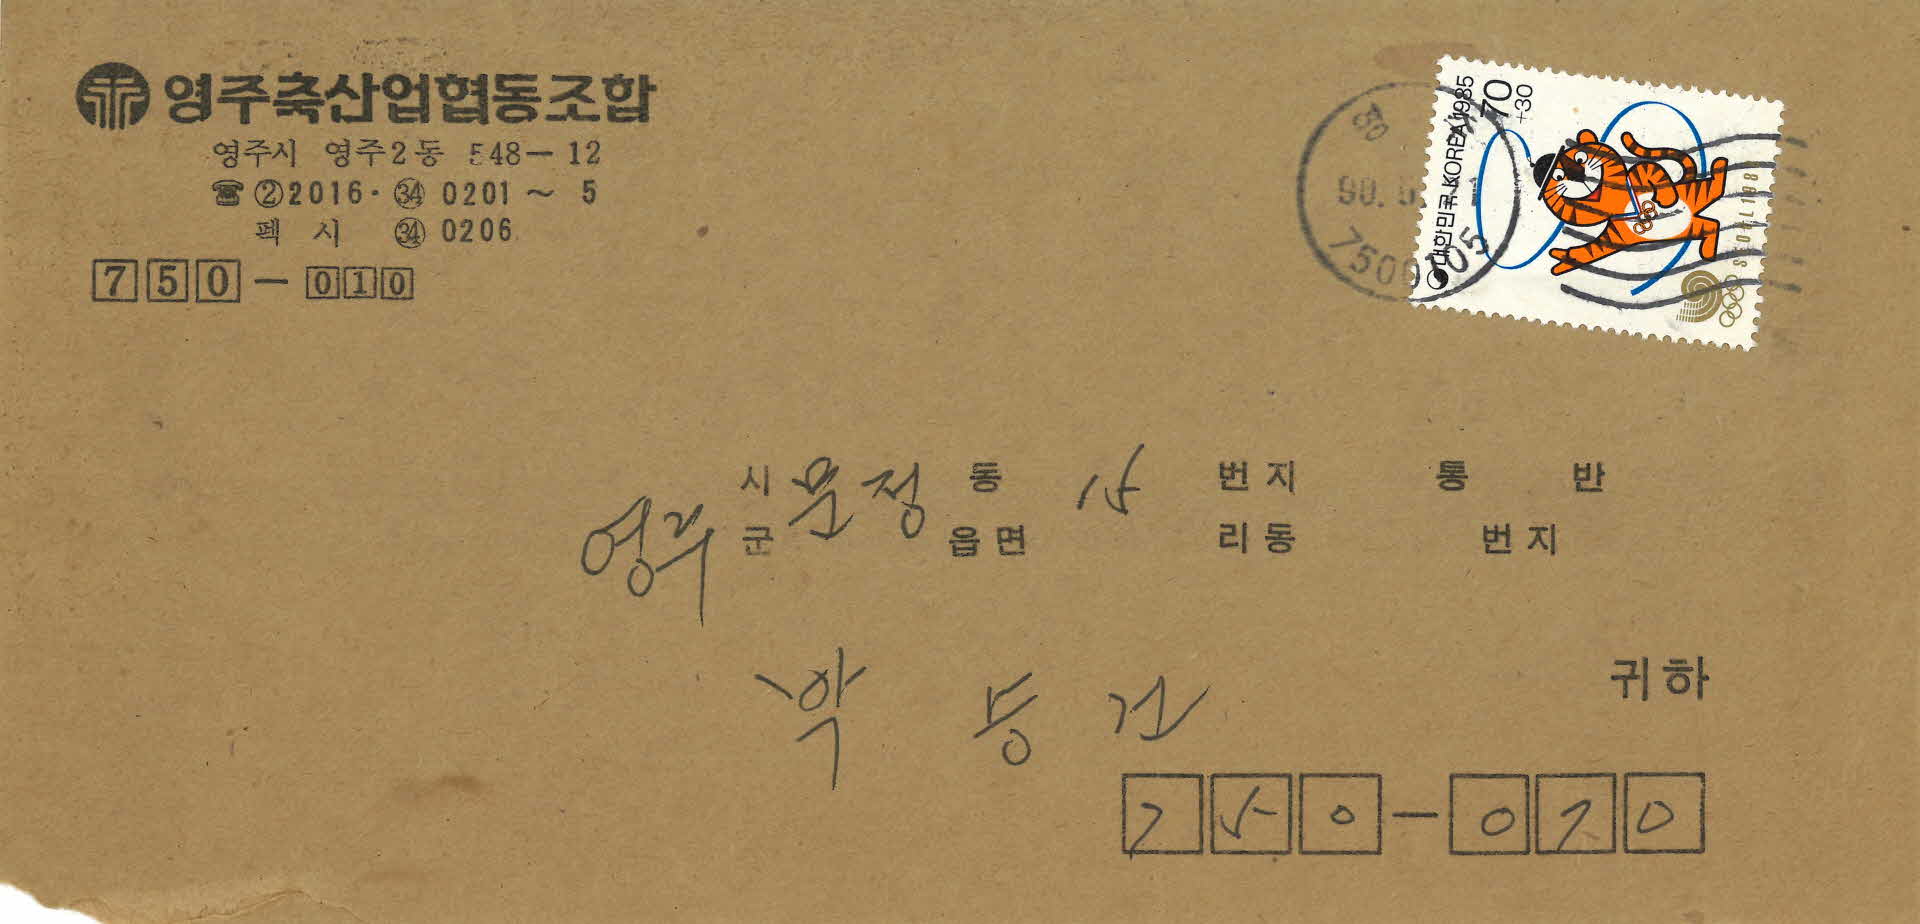 영주축산업협동조합
영주시 영주2동 548-12
☎ ②2016·㉞0201~5
팩시 ㉞0206
750-010
대한민국 KOREA 1985
70
+30
SEOUL 1988
750
영주 시 문정 동 15 번지 통 반
군 읍면 리동 번지
박동건 귀하
750-070